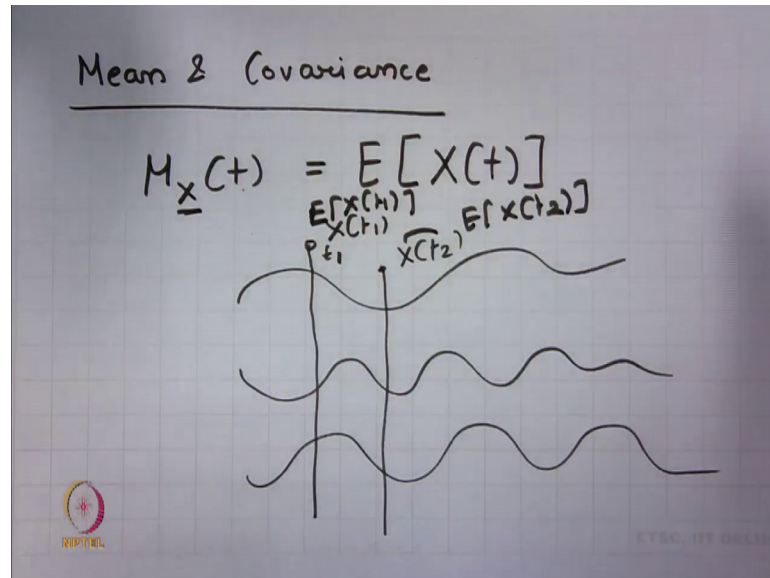 Mean & Covariance
μ_X(t) = E[X(t)]
E[X(t1)]
X(t1) X(t2) E[X(t2)]
t1
NPTEL
ETSC, IIT DELHI